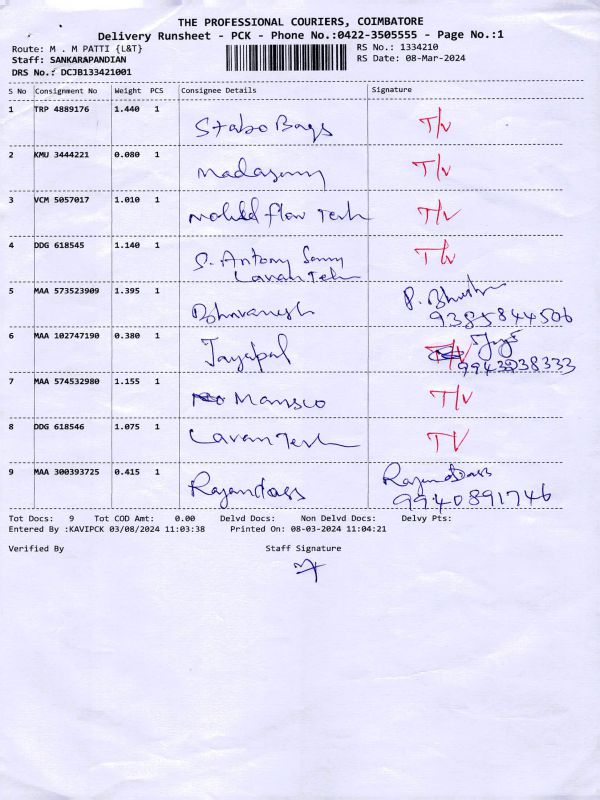 THE PROFESSIONAL COURIERS, COIMBATORE
Delivery Runsheet - PCK - Phone No.:0422-3505555 - Page No.:1
Route: M . M PATTI {L&T} RS No.: 1334210
Staff: SANKARAPANDIAN RS Date: 08-Mar-2024
DRS No.: DCJB133421001
S No Consignment No Weight PCS Consignee Details Signature
1 TRP 4889176 1.440 1 Stabo Bags T/V
2 KMU 3444221 0.080 1 Madasamy T/V
3 VCM 5057017 1.010 1 flow Tech T/V
4 DDG 618545 1.140 1 S. Antony Samy T/V
Lavan Tech
5 MAA 573523909 1.395 1 Bhuvanesh P. Bhuvanesh
9385844506
6 MAA 102747190 0.380 1 Jayapal T/V
7 MAA 574532980 1.155 1 Mansco T/V
8 DDG 618546 1.075 1 Lavan Tech TV
9 MAA 300393725 0.415 1 Rajandass
9940891746
Tot Docs: 9 Tot COD Amt: 0.00 Delvd Docs: Non Delvd Docs: Delvy Pts:
Entered By :KAVIPCK 03/08/2024 11:03:38 Printed On: 08-03-2024 11:04:21
Verified By Staff Signature